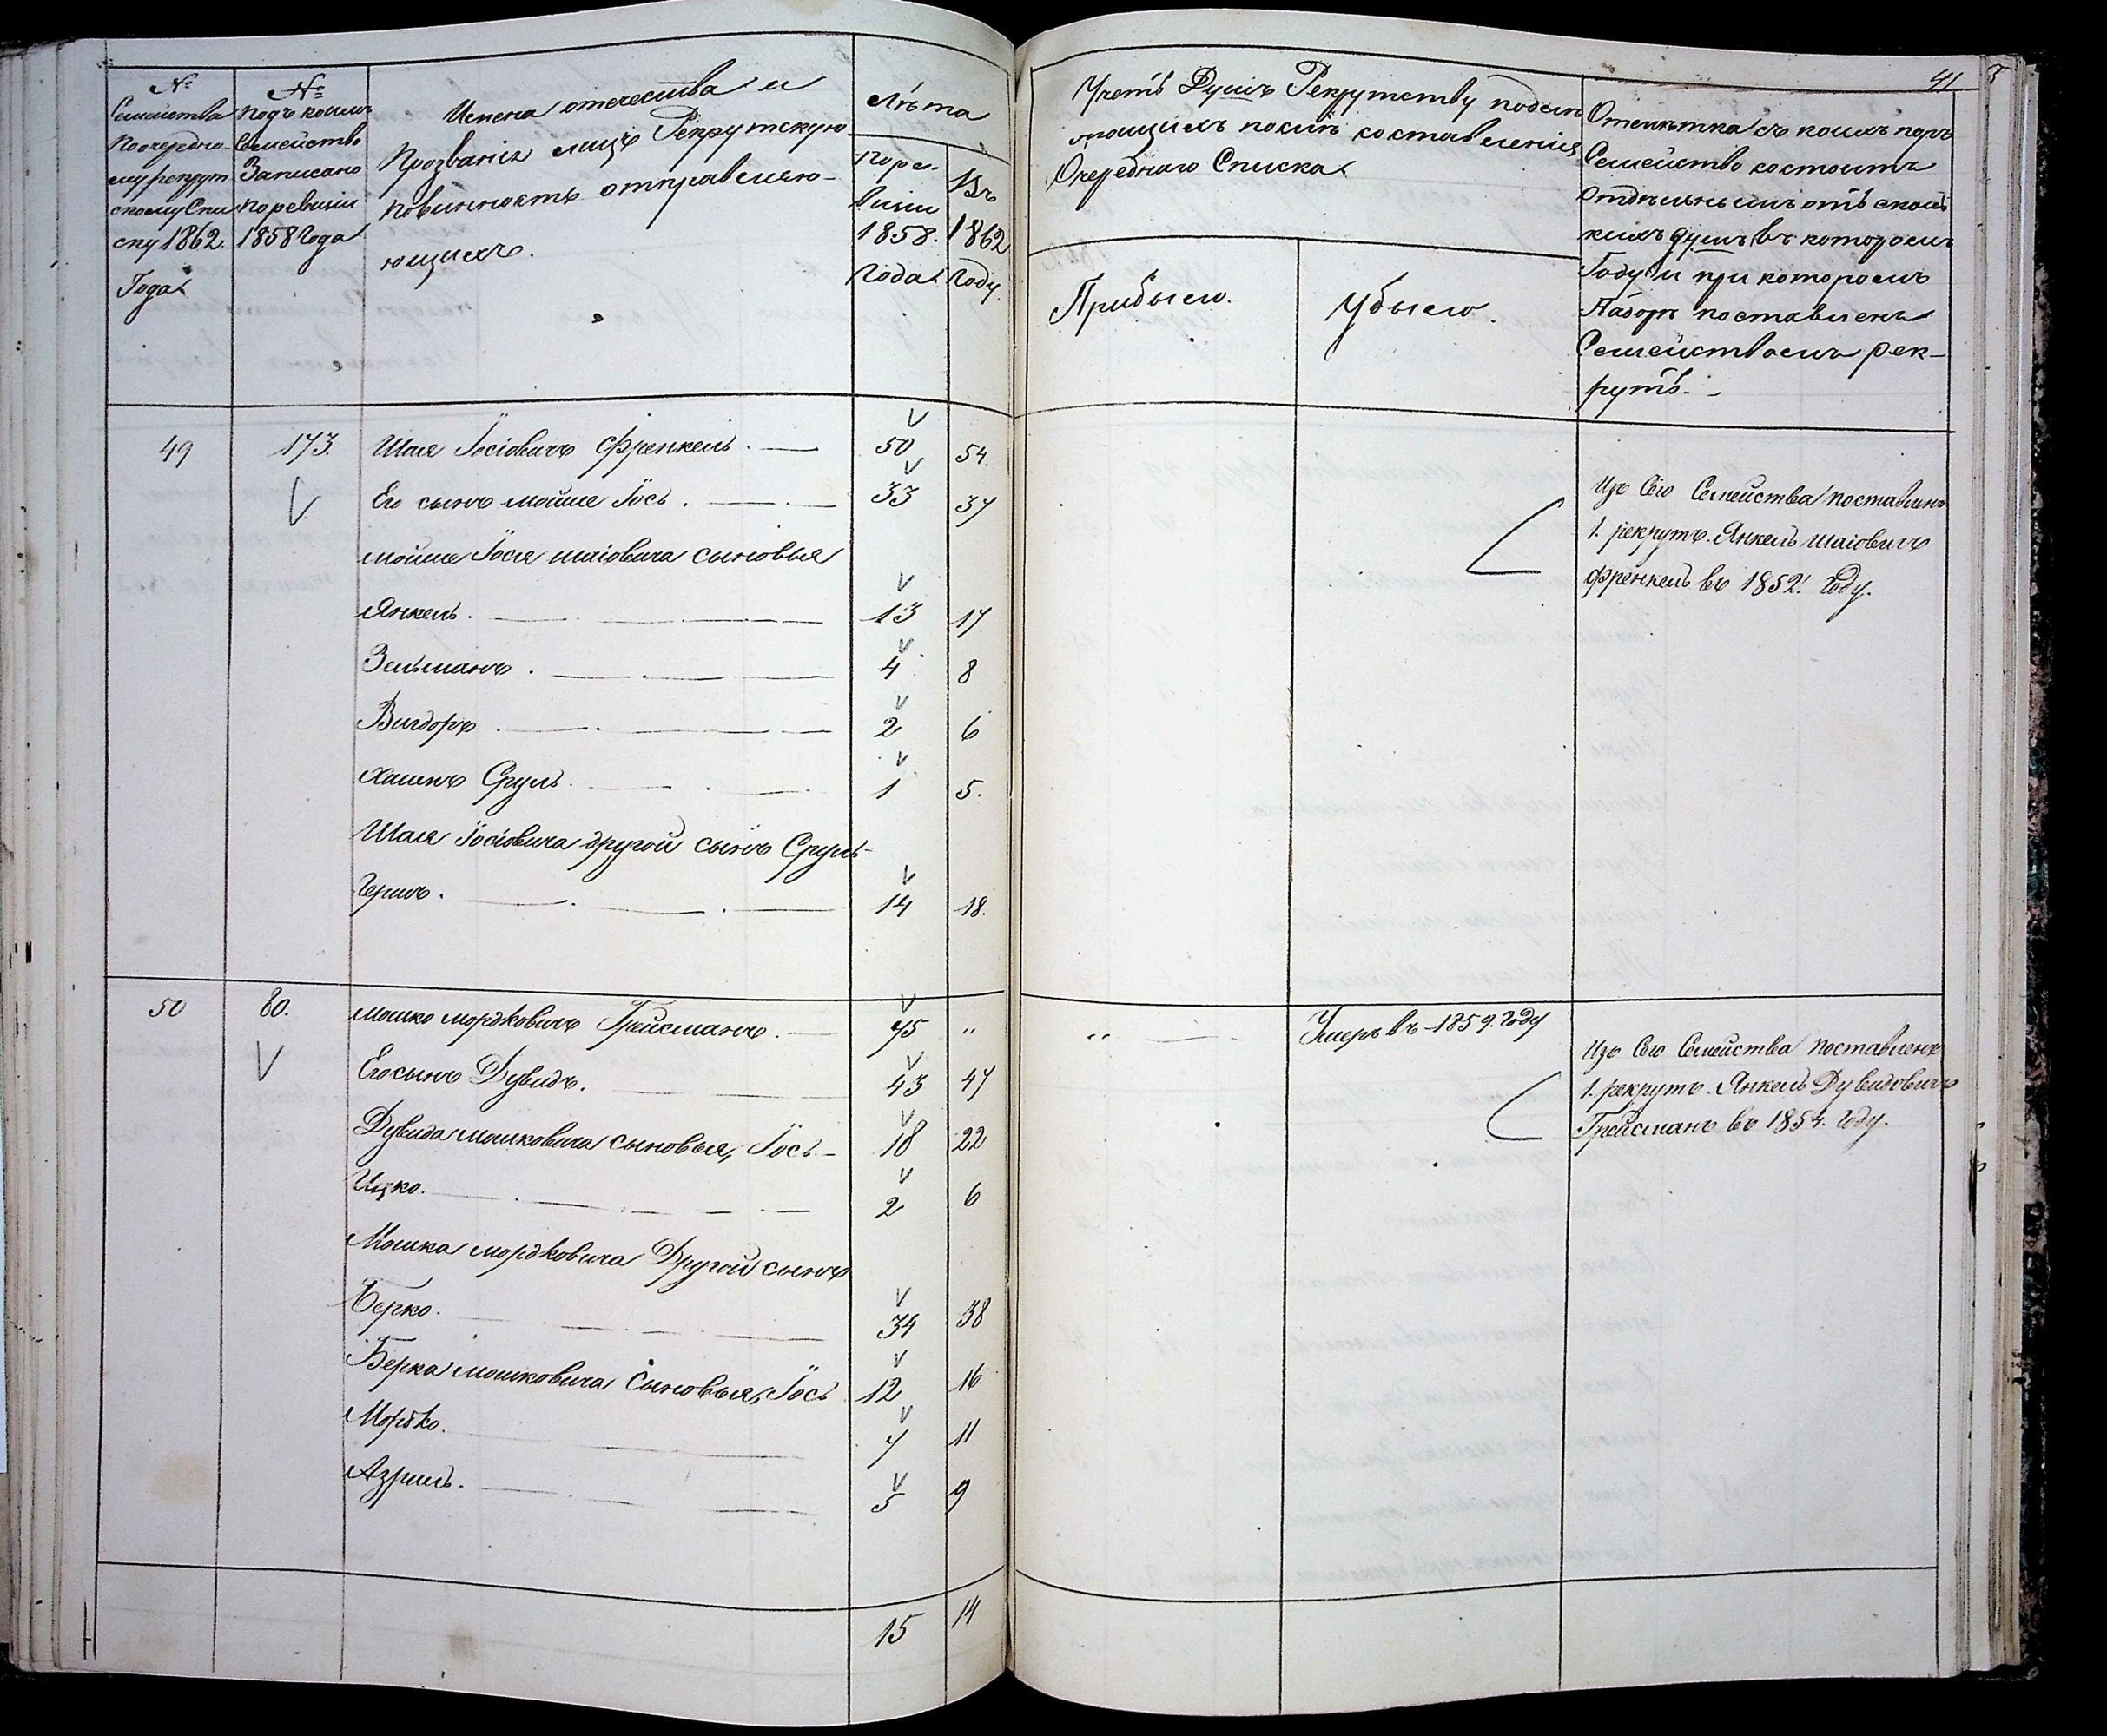 №
Семейства
Поочередно-
му рекрут
скому Спи
ску 1862.
Года
№
подъ коимъ
Семейство
Записано
поревизіи
1858 Года
Имена отечества и
Прозванія лицъ Рекрутскую
повинность отправляю-
ющихъ.
Лѣта
поре-
визіи
1858.
Года
Въ
1862
Году.
41
Учетъ Душъ Рекрутству подле
жащимъ послѣ составленія
Очереднаго Списка
Прибыло.
Убыло.
Отмѣтка съ коихъ поръ
Семейство состоитъ
Отдѣльнымъ отъ сколь
кихъ душъ въ которомъ
Году и при которомъ
Наборѣ поставленъ
Семействомъ рек-
рутъ.-
49 173. Шая Іосіовичъ Френкель. 50 54.
Его сынъ Мойше Іось. 33 37
Мойше Іося Шаіовича сыновья
Янкель. 13 17
Зельманъ. 4 8
Вигдоръ. 2 6
Хаимъ Сруль. 1 5.
Шая Іосіовича другой сынъ Сруль-
Гершъ. 14 18.
Изъ Сего Семейства поставленъ
1. рекрутъ. Янкель Шаіовичъ
Френкель въ 1852. Году.
50 80. Мошко Мордковичъ Грейсманъ. 75 „ „ Умеръ въ 1859. Году
Его сынъ Дувидъ. 43 47
Дувида Мошковича сыновья, Іось- 18 22
Ицко. 2 6
Мошка Мордковича Другой сынъ
Берко. 34 38
Берка Мошковича Сыновья, Іось 12 16.
Мордко. 7 11
Азриль. 5 9
Изъ Сего Семейства поставленъ
1. рекрутъ. Янкель Дувидовичъ
Грейсманъ въ 1854. Году.
15 14